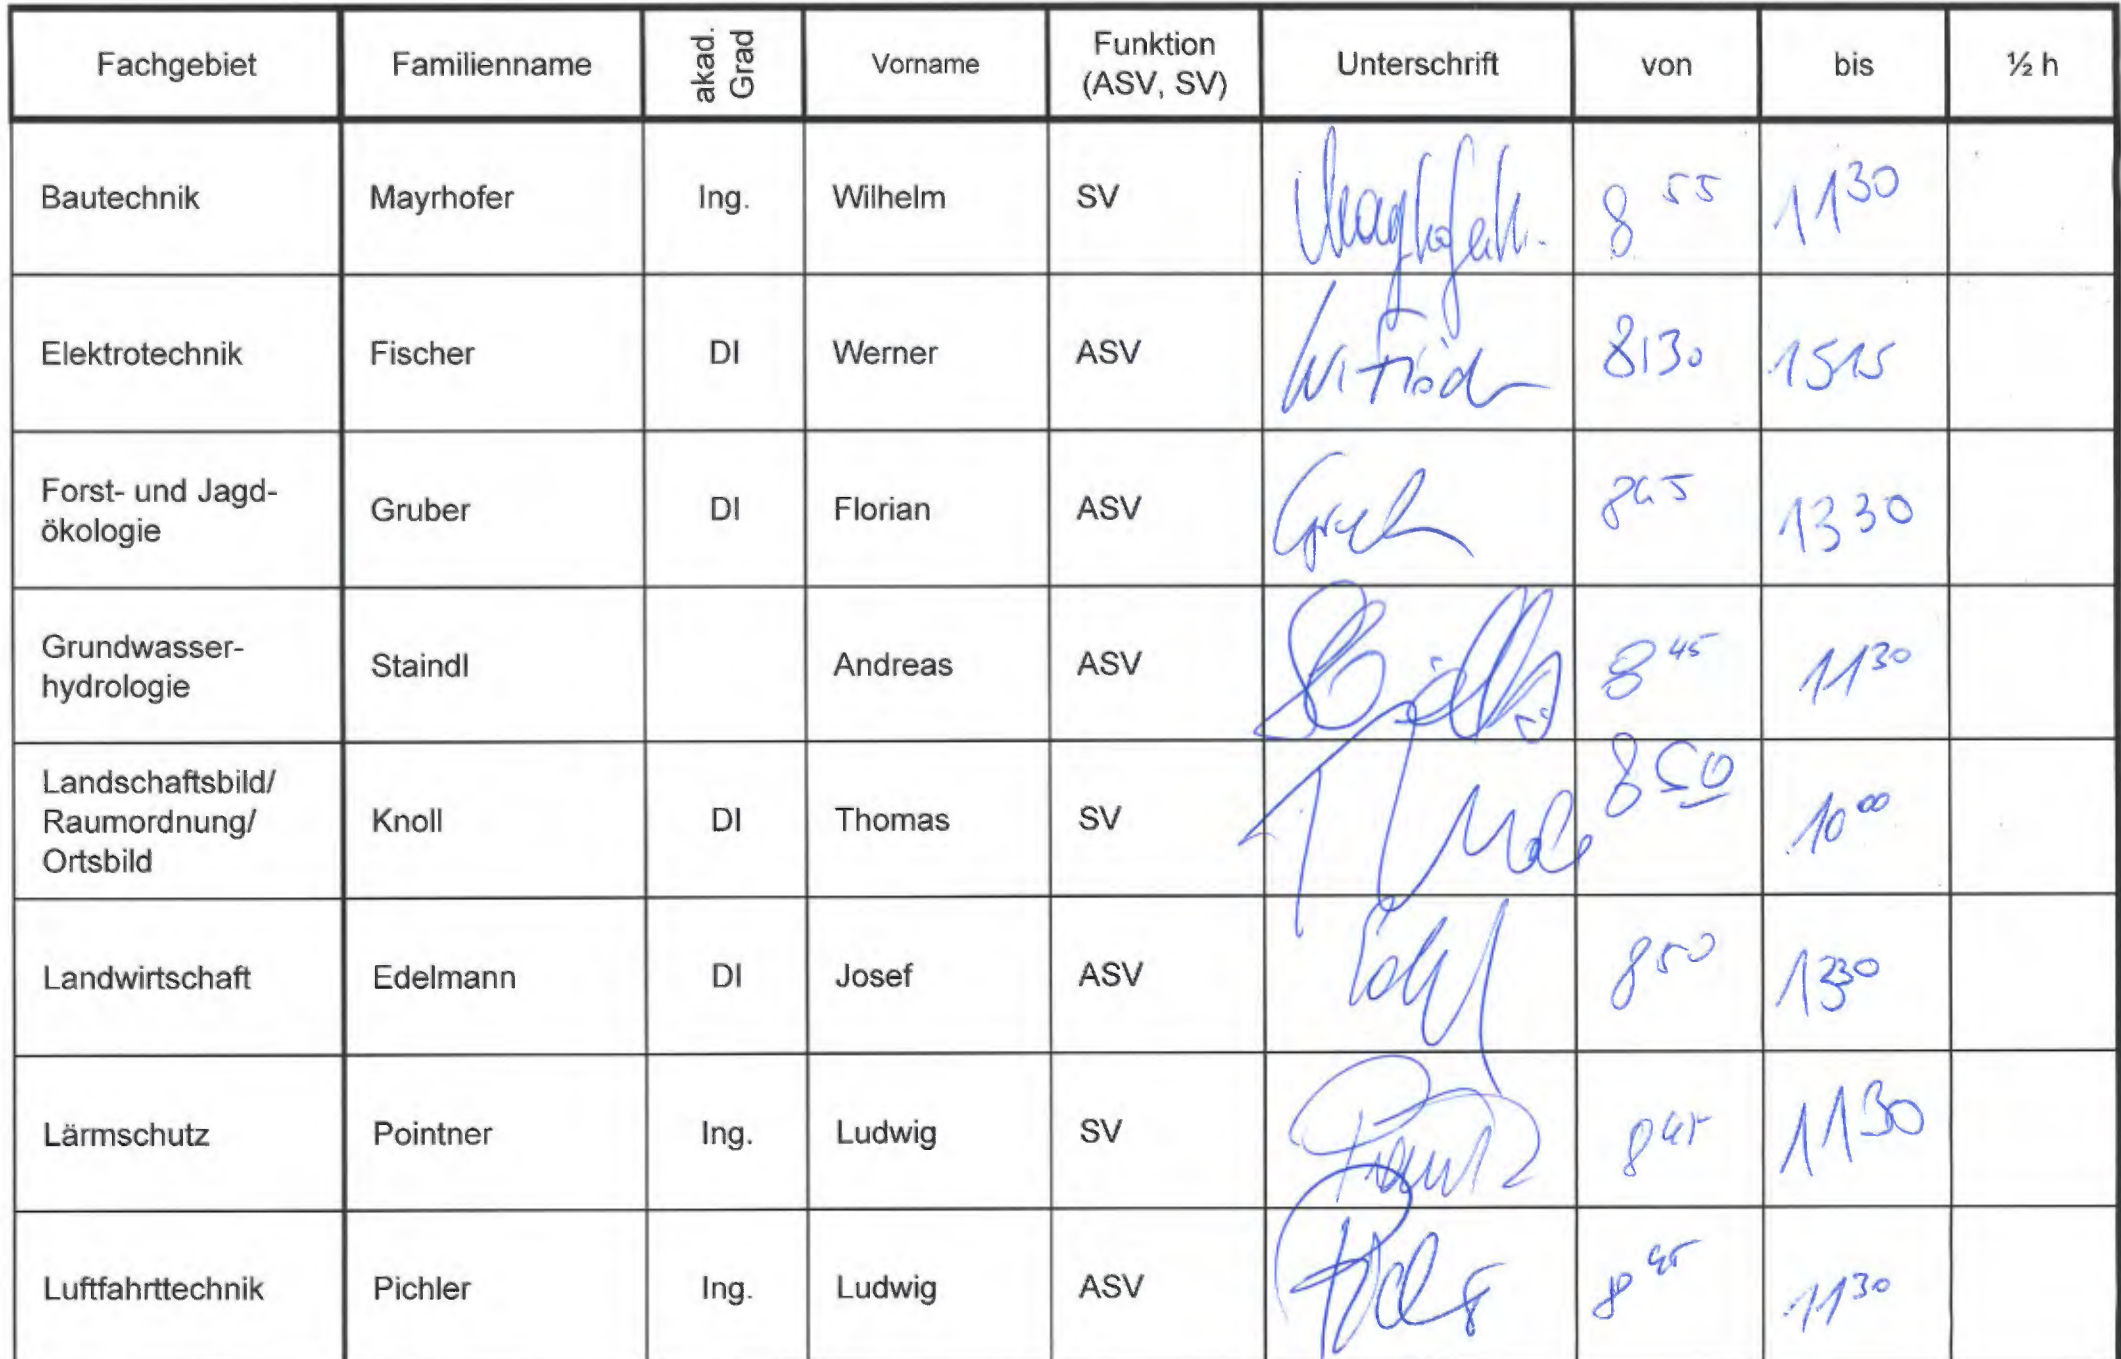 Fachgebiet Familienname akad. Grad Vorname Funktion (ASV, SV) Unterschrift von bis ½ h
Bautechnik Mayrhofer Ing. Wilhelm SV 8 55 11 30
Elektrotechnik Fischer DI Werner ASV 8130 1515
Forst- und Jagd-
ökologie Gruber DI Florian ASV 845 1330
Grundwasser-
hydrologie Staindl Andreas ASV 8 45 11 30
Landschaftsbild/
Raumordnung/
Ortsbild Knoll DI Thomas SV 8 50 10 00
Landwirtschaft Edelmann DI Josef ASV 8 50 1330
Lärmschutz Pointner Ing. Ludwig SV 8 45 11 30
Luftfahrttechnik Pichler Ing. Ludwig ASV 8 45 11 30